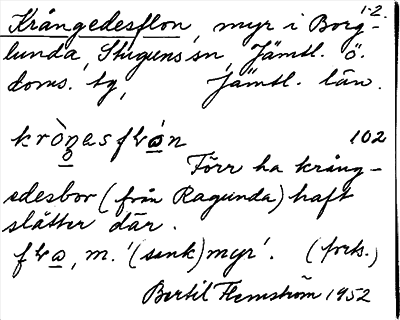 1-2.
Krångedesflon, myr i Borg-
lunda, Stuguns sn, Jämtl. ö.
doms. tg, Jämtl. län.
102
Förr ha krång-
edesbor (från Ragunda) haft
slåtter där.
m. '(sank)myr'. (forts.)
Bertil Flemström 1952